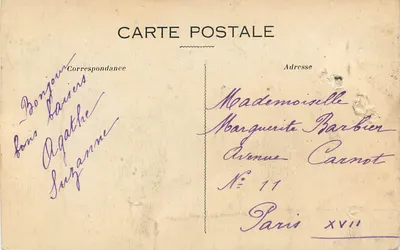 CARTE POSTALE
Correspondance
Adresse
Bonjour
bons baisers
Agathe
Suzanne
Mademoiselle
Marguerite Barbier
Avenue Carnot
No 11
Paris XVII